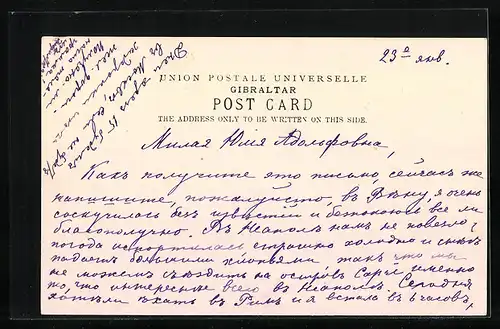 23º янв.
UNION POSTALE UNIVERSELLE
GIBRALTAR
POST CARD
THE ADDRESS ONLY TO BE WRITTEN ON THIS SIDE.
Милая Юлія Адольфовна,
Какъ получите это письмо, сейчасъ же
напишите, пожалуйста, въ Вѣну, я очень
соскучилась безъ извѣстій и безпокоюсь все ли
благополучно. Въ Неаполѣ намъ не повезло,
погода испортилась страшно холодно и снѣгъ
падаетъ большими хлопьями такъ что мы
не можемъ съѣздить на островъ Capri именно
то, что интереснѣе всего въ Неаполѣ. Сегодня
хотѣли ѣхать въ Римъ и я встала въ 6 часовъ,